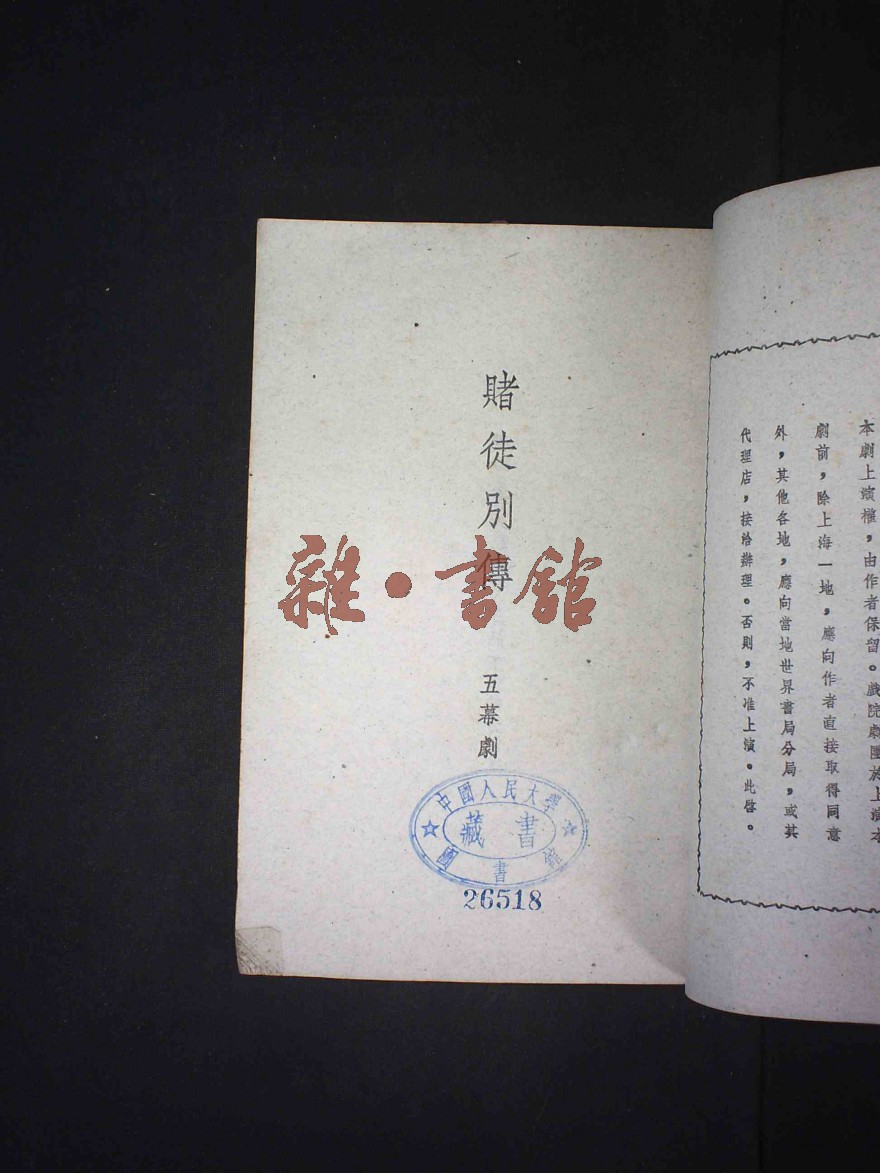 本劇上演權，由作者保留。戲院劇團於上演本
劇前，除上海一地，應向作者直接取得同意
外，其他各地，應向當地世界書局分局，或其
代理店，接洽辦理。否則，不准上演。此啓。
賭徒別傳
五幕劇
雜·書館
中國人民大學
藏書
圖書館
26518